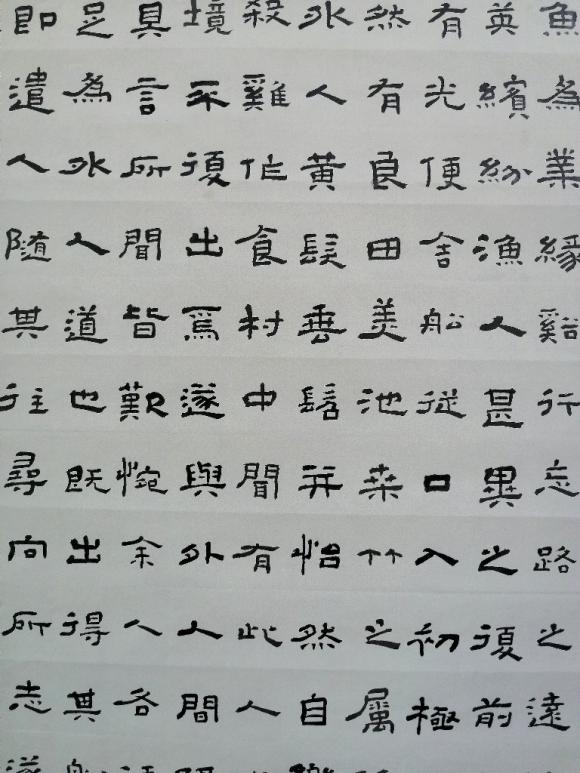 魚為業緣谿行忘路之遠
英繽紛漁人甚異之復前
有光便舍船從口入初極
然有良田美池桒竹之属
外人黃髮垂髫并怡然自
殺雞作食村中聞有此人
境不復出焉遂與外人間
具言所聞皆歎惋余人各
足為外人道也既出得其
即遣人随其往尋向所志